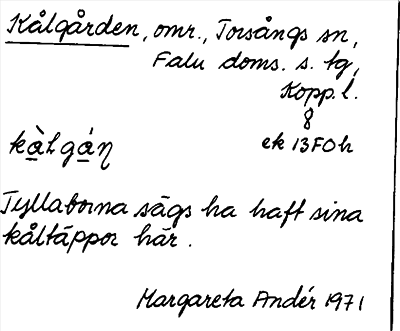 Kålgården, omr., Torsångs sn,
Falu doms. s. tg,
Kopp. l.
8
ek 13F0h
kàlgáɳ
Tyllaborna sägs ha haft sina
kåltäppor här.
Margareta Andér 1971